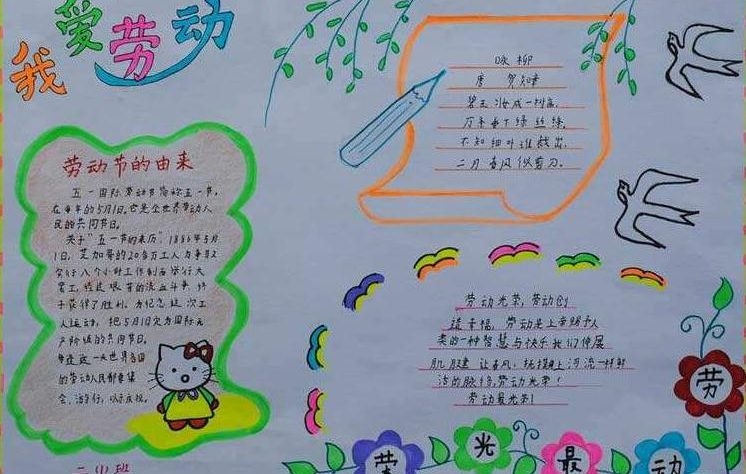 我爱劳动
劳动节的由来
五一国际劳动节简称五一节，
在每年的5月1日。它是全世界劳动人
民的共同节日。
关于“五一节的来历”，1886年5月
1日，芝加哥的20多万工人为争取
实行八个小时工作制而举行大
罢工，经过艰苦的流血斗争，终
于获得了胜利。为纪念这次工
人运动，把5月1日定为国际无
产阶级的共同节日。
每逢这一天世界各国
的劳动人民都要集
会、游行，以示庆祝。
二 班
咏柳
唐 贺知章
碧玉妆成一树高，
万条垂下绿丝绦。
不知细叶谁裁出，
二月春风似剪刀。
劳动光荣，劳动创
造幸福，劳动是上帝赐予人
类的一种智慧与快乐我们伸展
肌腱 让春风，抚摸上河流一样鲜
活的脉络，劳动光荣！
劳动最光荣！
劳
动
最
光
荣